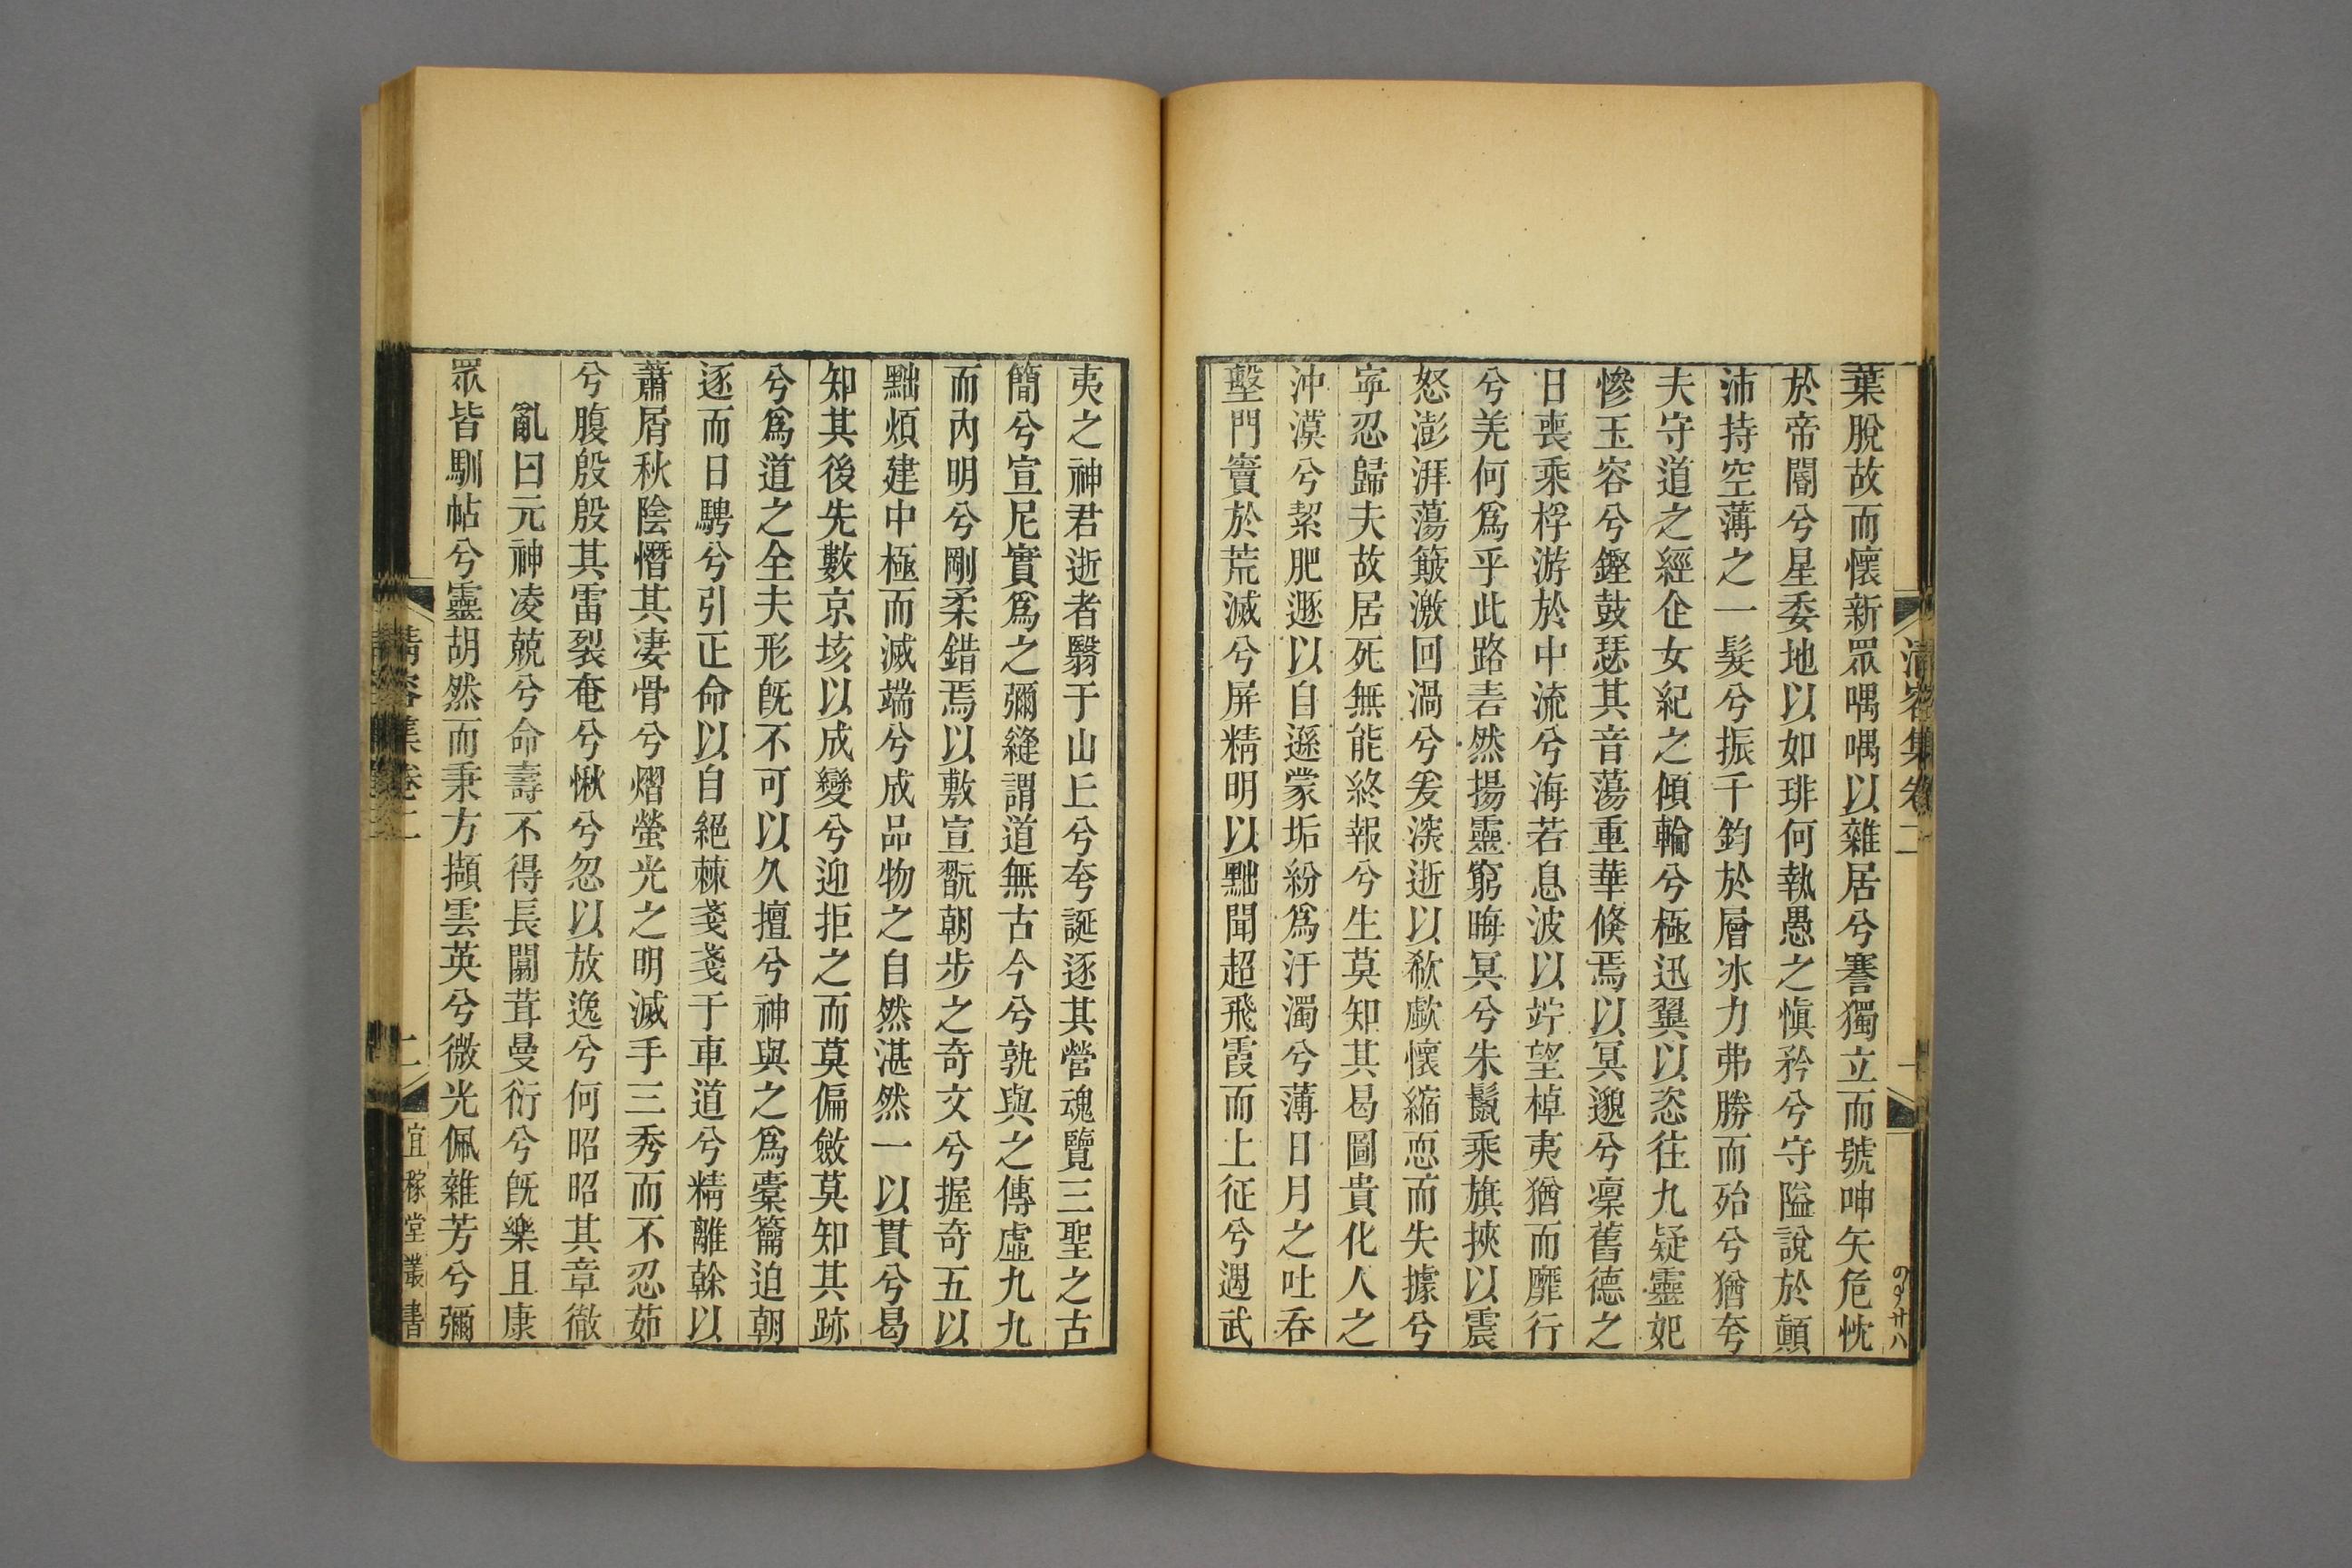 清容集卷二
一
葉脫故而懷新眾喁喁以雜居兮謇獨立而號呻矢危忱
於帝閽兮星委地以如琲何執愚之愼矜兮守隘說於顛
沛持空薄之一髮兮振千鈞於層冰力弗勝而殆兮猶夸
夫守道之經企女紀之傾輪兮極迅翼以恣往九疑靈妃
慘玉容兮鏗鼓瑟其音蕩重華倏焉以冥邈兮凜舊德之
日喪乘桴游於中流兮海若息波以竚望棹夷猶而靡行
兮羌何爲乎此路砉然揚靈窮晦冥兮朱鬣乘旗挾以震
怒澎湃蕩簸激回渦兮爰深逝以欷歔懷縮恧而失據兮
寧忍歸夫故居死無能終報兮生莫知其曷圖貴化人之
沖漠兮絜肥遯以自遜蒙垢紛爲汙濁兮薄日月之吐吞
墼門竇於荒滅兮屏精明以黜聞超飛霞而上征兮遇武
夷之神君逝者翳于山丘兮夸誕逐其營魂覽三聖之古
簡兮宣尼實爲之彌縫謂道無古今兮孰與之傳虛九九
而內明兮剛柔錯焉以敷宣翫朝步之奇文兮握奇五以
黜煩建中極而滅端兮成品物之自然湛然一以貫兮曷
知其後先數京垓以成變兮迎拒之而莫偏斂莫知其跡
兮爲道之全夫形旣不可以久擅兮神與之爲橐籥迫朝
逐而日騁兮引正命以自絕棘戔戔于車道兮精離榦以
蕭屑秋陰憯其凄骨兮熠螢光之明滅手三秀而不忍茹
兮腹殷殷其雷裂奄兮愀兮忽以放逸兮何昭昭其章徹
亂曰元神凌兢兮命壽不得長闒茸曼衍兮旣樂且康
眾皆馴帖兮靈胡然而秉方擷雲英兮微光佩雜芳兮彌
清容集卷二
二
宜稼堂叢書